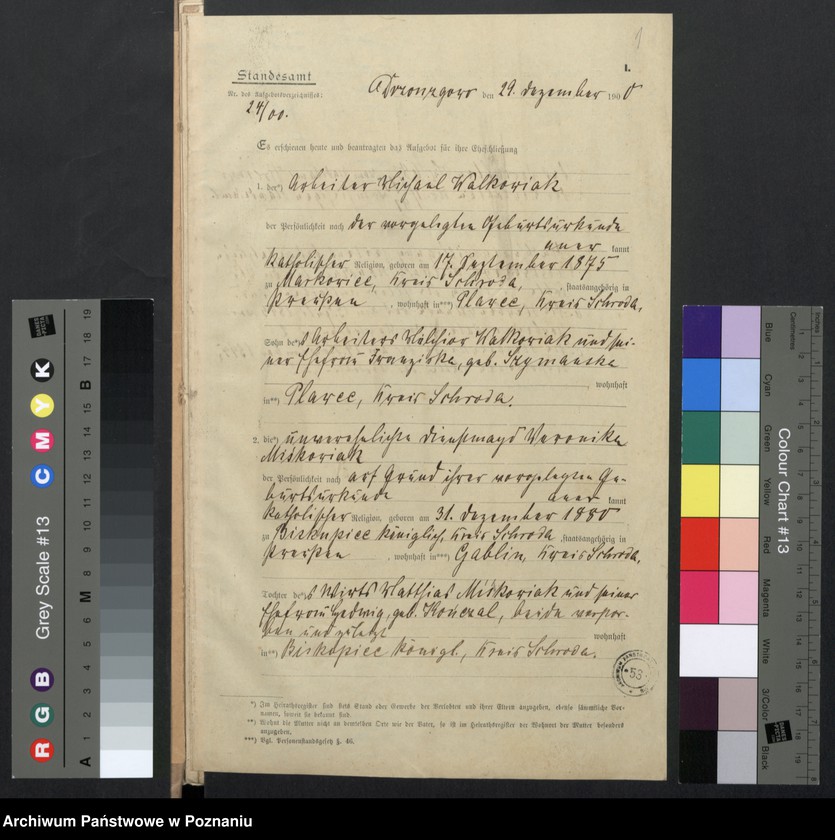 I.
Standesamt
Nr. des Aufgebotsverzeichnisses:
24/00.
den 29. Dezember 1900
Es erschienen heute und beantragten das Aufgebot für ihre Eheschließung
1. der*) Arbeiter Michael Walkowiak
der Persönlichkeit nach der vorgelegten Geburtsurkunde
aner kannt
katholischer Religion, geboren am 17. September 1875
zu Markowice, Kreis Schroda, , staatsangehörig in
Preußen , wohnhaft in***) Plawce, Kreis Schroda,
Sohn des Arbeiters Melchior Walkowiak und sei-
ner Ehefrau Franziska, geb. Szymanska
, wohnhaft
in**) Plawce, Kreis Schroda.
2. die*) unverehelichte Dienstmagd Veronika
Miśkowiak
der Persönlichkeit nach auf Grund ihrer vorgelegten Ge-
burtsurkunde aner kannt
katholischer Religion, geboren am 31. Dezember 1880
zu Biskupice königlich, Kreis Schroda , staatsangehörig in
Preußen , wohnhaft in***) Gablin, Kreis Schroda,
Tochter des Wirts Matthias Miśkowiak und seiner
Ehefrau Hedwig, geb. Konczal, beide verstor-
ben und zuletzt wohnhaft
in**) Biskupice königl., Kreis Schroda.
*) Im Heiratsregister sind stets Stand oder Gewerbe der Verlobten und ihrer Eltern anzugeben, ebenso sämmtliche Vor-
namen, soweit sie bekannt sind.
**) Wohnt die Mutter nicht an demselben Orte wie der Vater, so ist im Heiratsregister der Wohnort der Mutter besonders
anzugeben.
***) Vgl. Personenstandsgesetz §. 46.
53
Grey Scale #13
R G B C M Y K
A 1 2 3 4 5 6 M 8 9 10 11 12 13 14 15 B 17 18 19
Colour Chart #13
Blue
Cyan
Green
Yellow
Red
Magenta
White
3/Color
Black
Inches
Centimetres
Archiwum Państwowe w Poznaniu